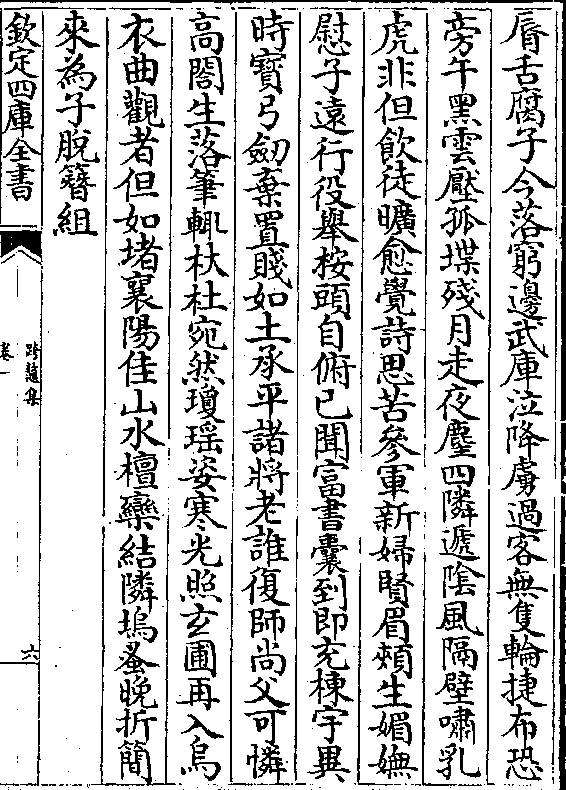 脣舌腐子今落窮邊武庫泣降虜過客無隻輪捷布恐
旁午黑雲壓孤堞殘月走夜麈四隣遞陰風隔壁嘯乳
虎非但飲徒曠愈覺詩思苦參軍新婦賢眉頰生媚嫵
慰子遠行役舉按頭自俯已聞富書囊到即充棟宇異
時寳弓劒棄置賤如土承平諸將老誰復師尚父可憐
高閣生落筆輒杕杜宛然瓊瑶姿寒光照玄圃再入烏
衣曲觀者但如堵襄陽佳山水檀欒結隣塢蚤晚折簡
來為子脫簪組
欽定四庫全書
跨鼇集
卷一
六